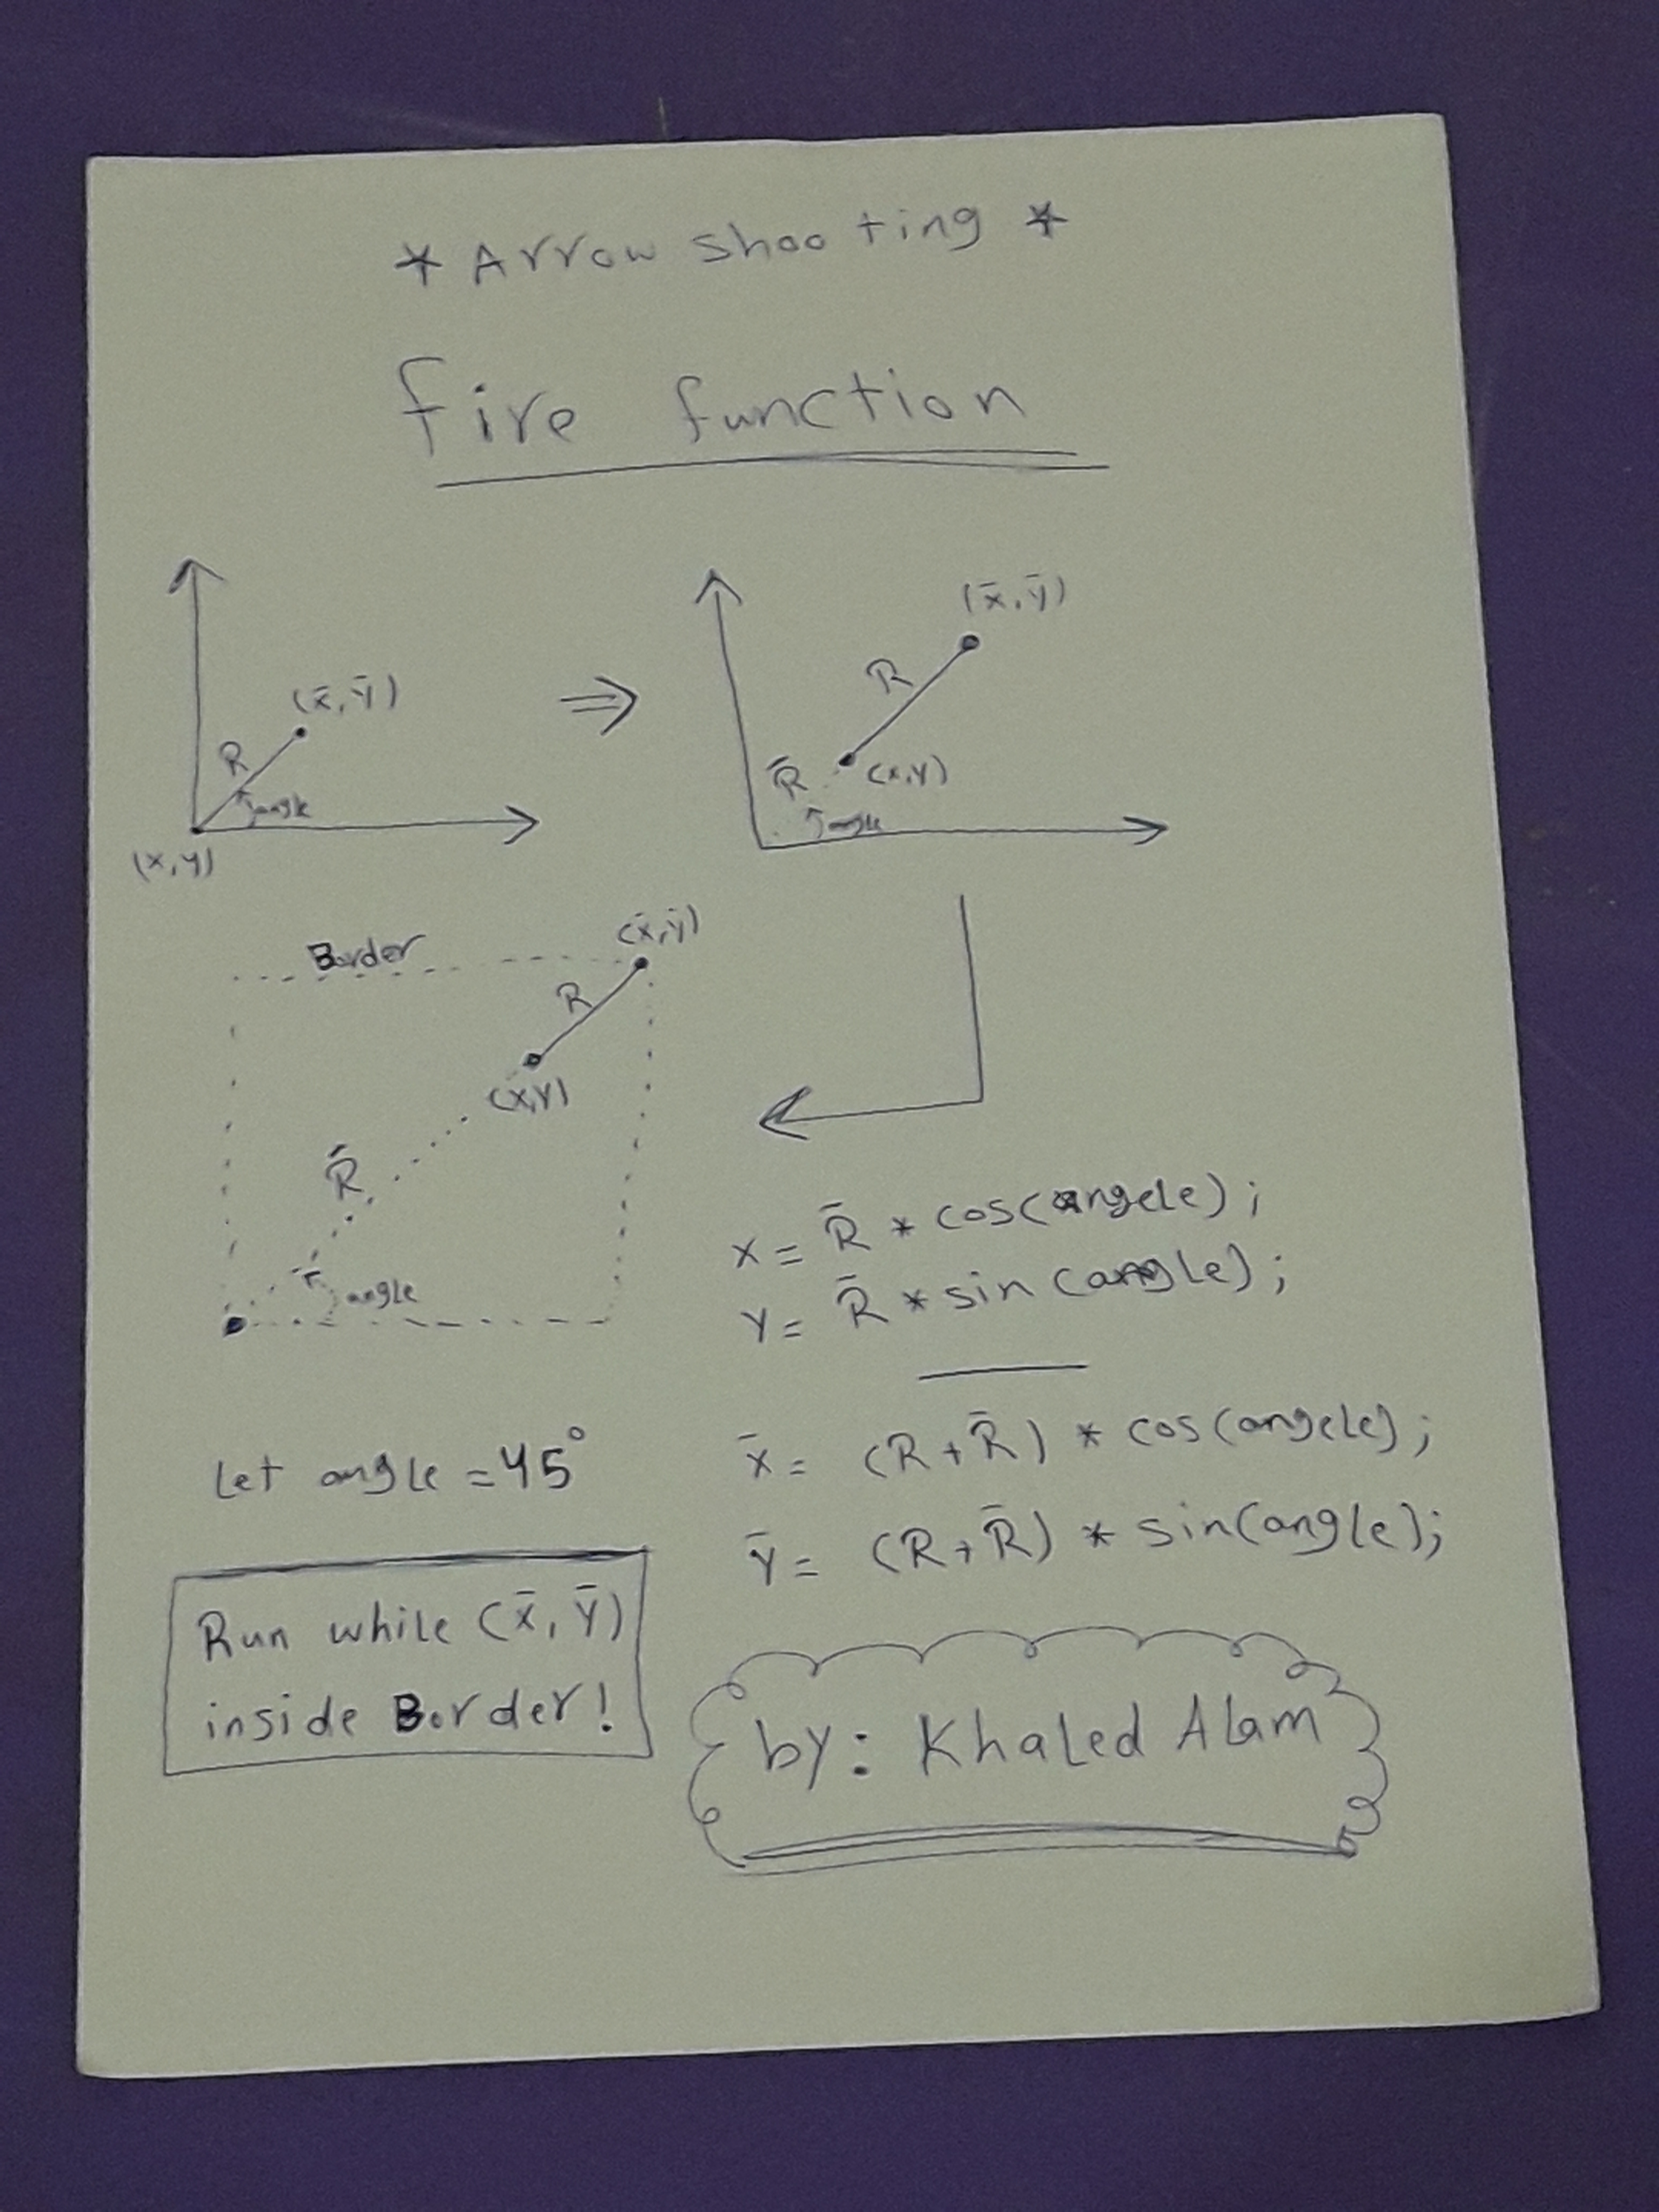 * Arrow shooting *
fire function
(x̄, ȳ)
R
angle
(x, y)
⇒
(x̄, ȳ)
R
(x,y)
R̄
angle
Border
(x̄, ȳ)
R
(x,y)
R̄
angle
x = R̄ * cos(angele);
y = R̄ * sin(angle);
Let angle = 45°
x̄ = (R + R̄) * cos(angele);
ȳ = (R + R̄) * sin(angle);
Run while (x̄, ȳ)
inside Border!
by: Khaled Alam